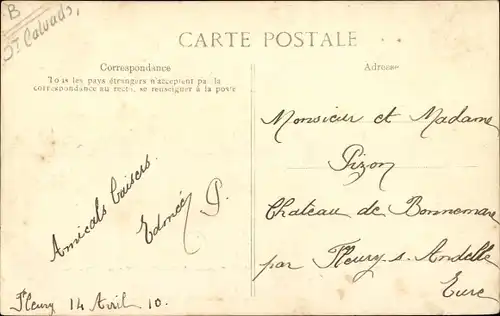 B
Dt Calvados,
CARTE POSTALE
Correspondance
Tous les pays étrangers n'acceptent pas la
correspondance au recto, se renseigner à la poste
Adresse
Monsieur et Madame
Pizon
Château de Bonnemare
par Fleury s. Andelle
Eure
Amicals baisers.
P.
Fleury 14 Avril 10.